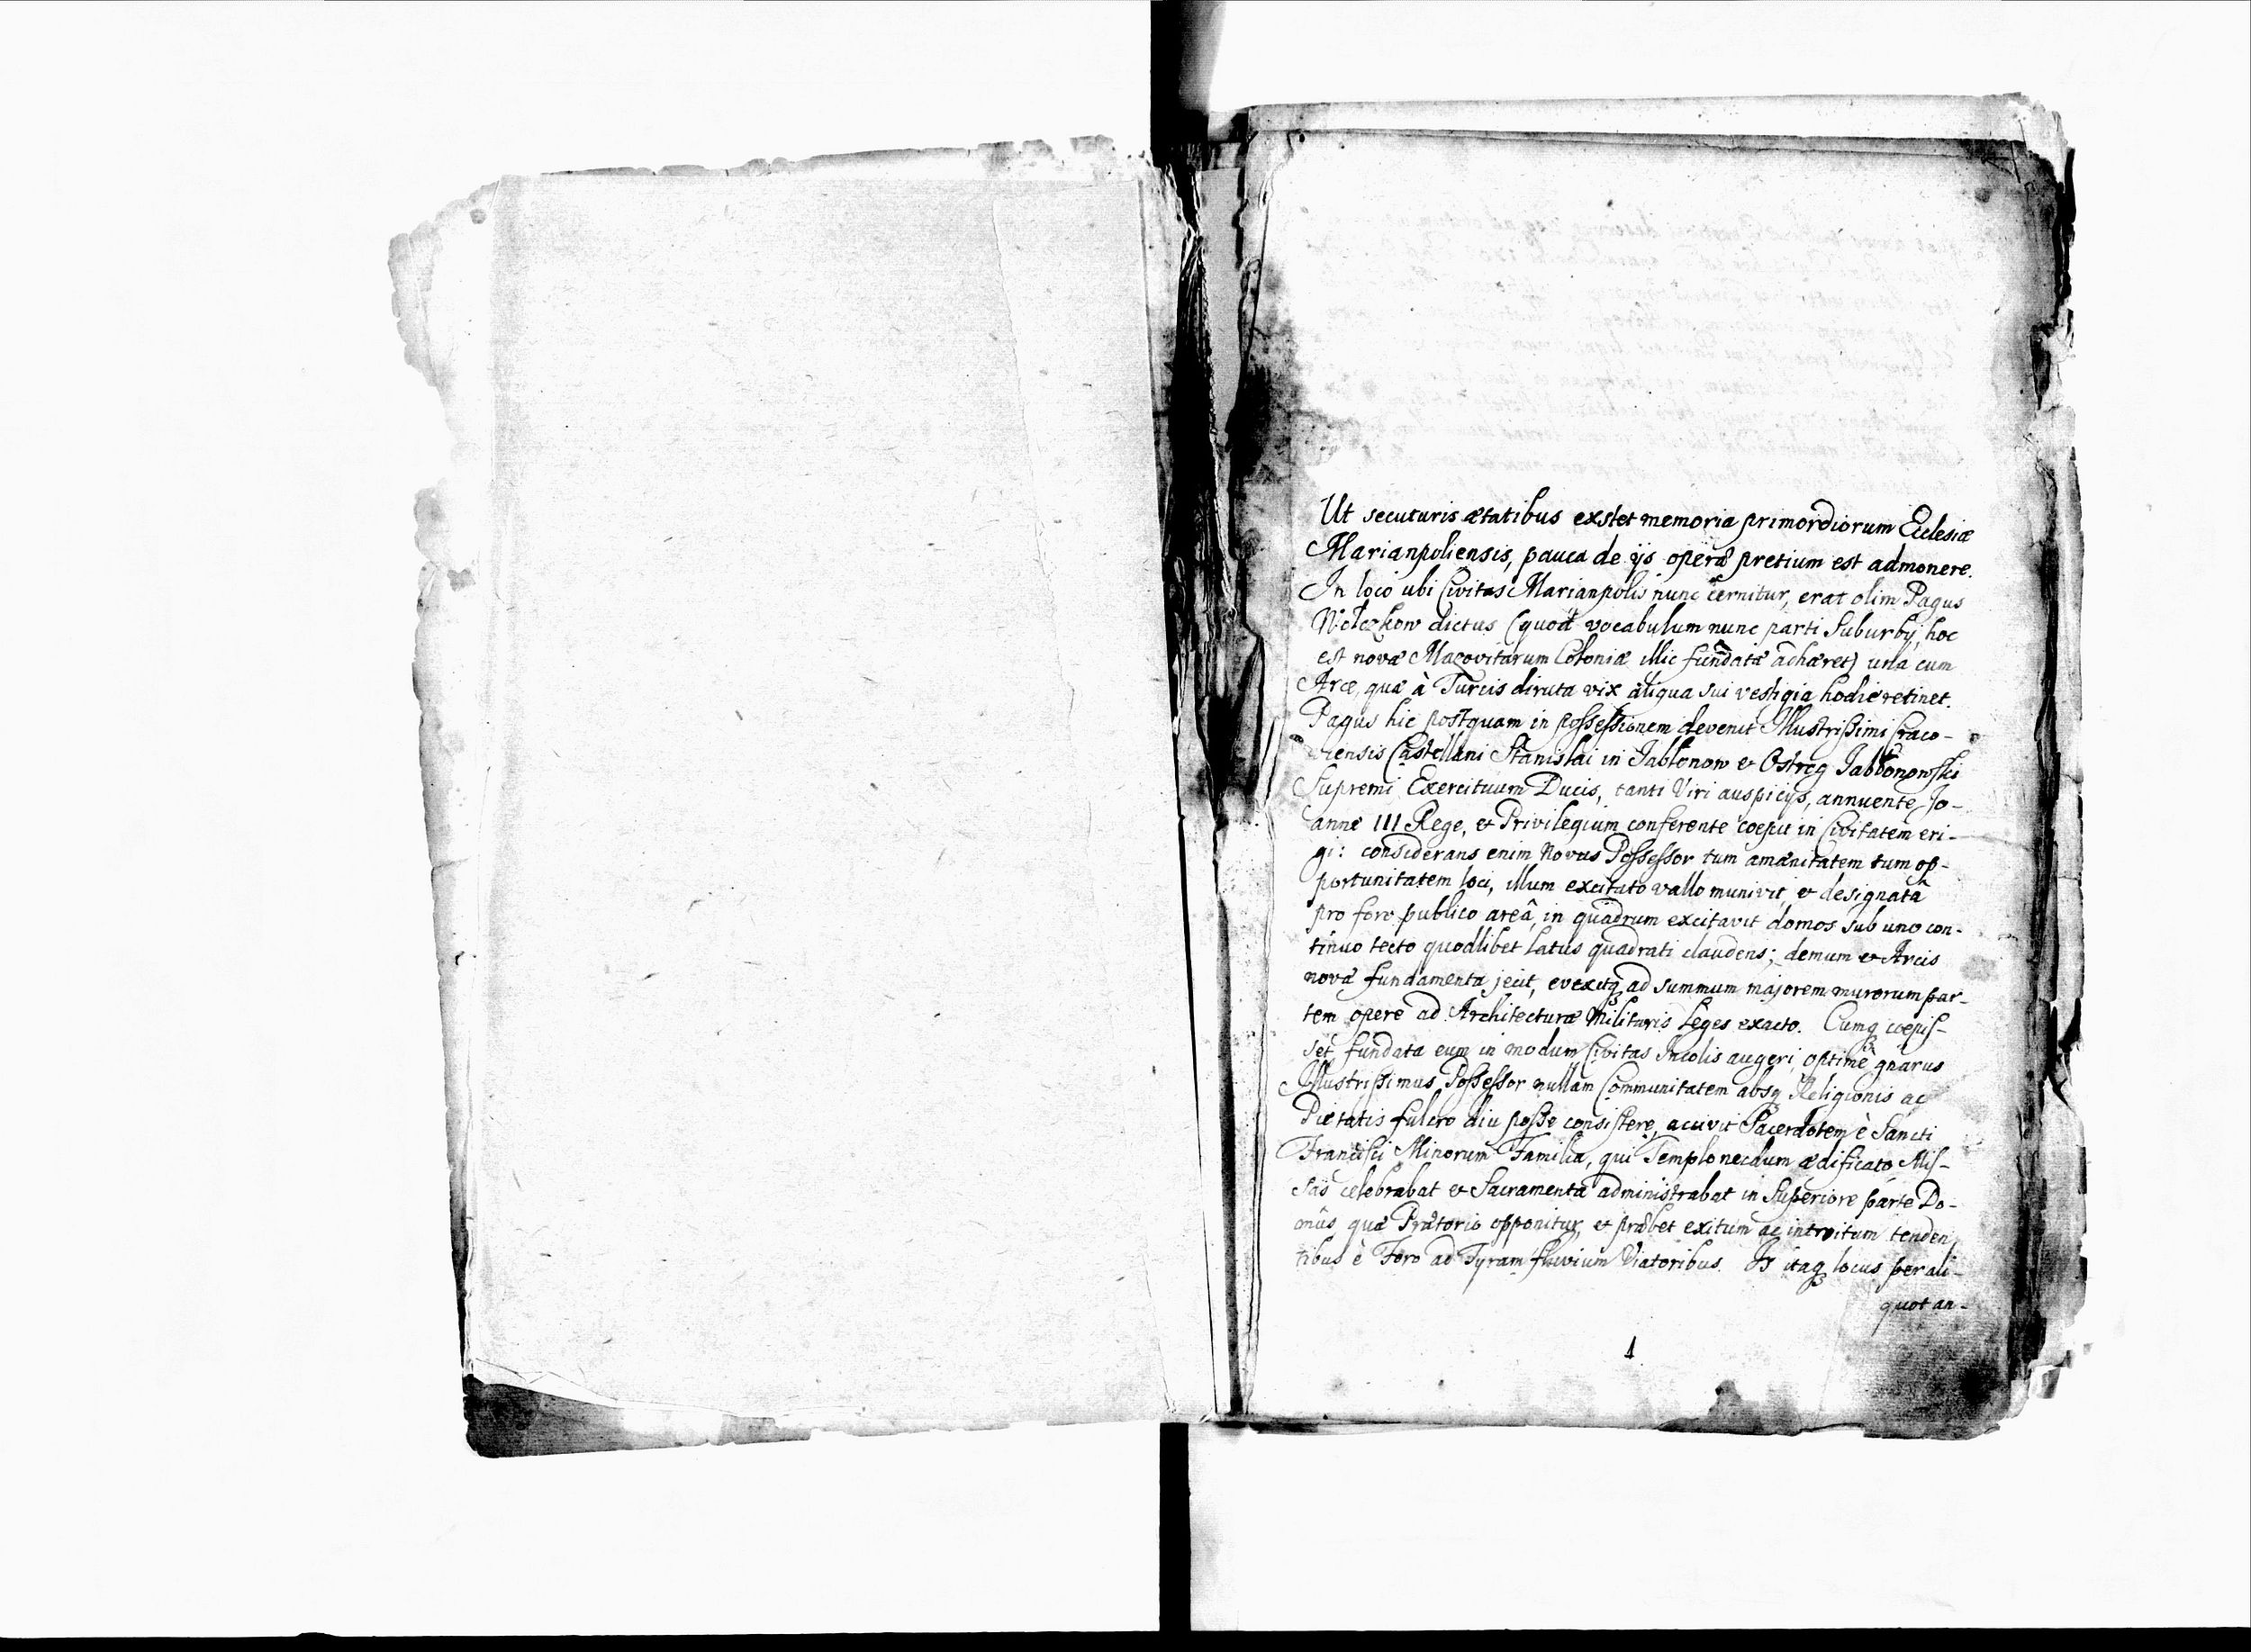 Ut secuturis ætatibus exstet memoria primordiorum Ecclesiæ
Marianpoliensis, pauca de ijs operæ pretium est admonere.
In loco ubi Civitas Marianpolis nunc cernitur, erat olim Pagus
Wołczkow dictus (quod vocabulum nunc parti Suburbij, hoc
est novæ Mazovitarum Coloniæ illic fundatæ adhæret) una cum
Arce, quæ à Turcis diruta vix aliqua sui vestigia hodie retinet.
Pagus hic postquam in possessionem devenit Illustrissimi Craco-
viensis Castellani Stanislai in Jabłonow & Ostrog Jabłonowski
Supremi Exercituum Ducis, tanti Viri auspicijs, annuente Jo-
anne III Rege, & Privilegium conferente coepit in Civitatem eri-
gi: considerans enim Novus Possessor tum amænitatem tum op-
portunitatem loci, illum excitato vallo munivit, & designatâ
pro foro publico areâ, in quadrum excitavit domos sub uno con-
tinuo tecto quodlibet latus quadrati claudens; demum & Arcis
novæ fundamenta jecit, evexitq ad summum majorem murorum par-
tem opere ad Architecturæ Militaris Leges exacto. Cumq coepis-
set fundata eum in modum Civitas Incolis augeri, optimè gnarus
Illustrissimus Possessor nullam Communitatem absq Religionis ac
Pietatis fulcro diu posse consistere, acivit Sacerdotem è Sancti
Francisci Minorum Familia, qui Templo necdum ædificato Mis-
sas celebrabat & Sacramenta administrabat in Superiore parte Do-
mûs quæ Prætorio opponitur, et præbet exitum ac introitum tenden
tibus è Foro ad Tyram fluvium Viatoribus. Is itaq locus per ali-
quot an-
1